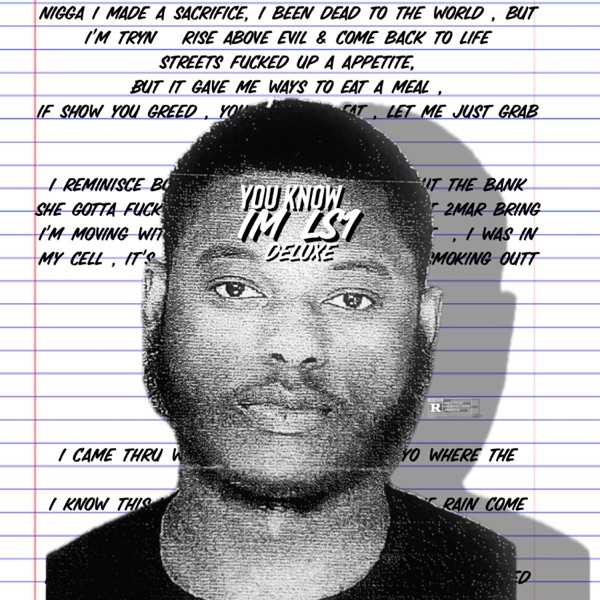 NIGGA I MADE A SACRIFICE, I BEEN DEAD TO THE WORLD , BUT
I'M TRYN RISE ABOVE EVIL & COME BACK TO LIFE
STREETS FUCKED UP A APPETITE,
BUT IT GAVE ME WAYS TO EAT A MEAL ,
IF SHOW YOU GREED , , LET ME JUST GRAB
I REMINISCE THE BANK
YOU KNOW
SHE GOTTA FUCK 2MAR BRING
IM LS1
I'M MOVING , I WAS IN
DELUXE
MY CELL , IT'S SMOKING OUTT
R
I CAME THRU YO WHERE THE
I KNOW THIS RAIN COME